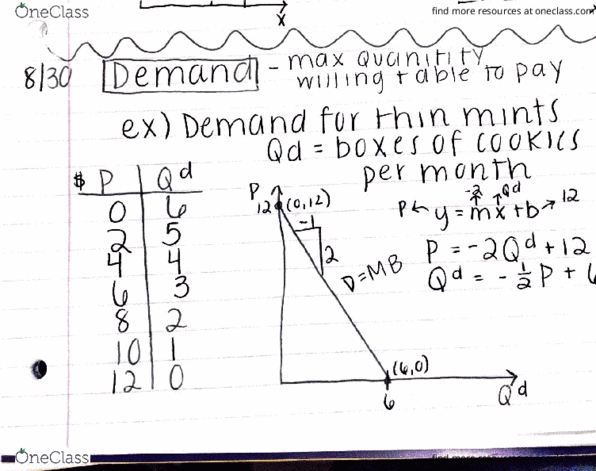 OneClass
find more resources at oneclass.com
x
8/30 Demand - max quantity
willing + able to pay
ex) Demand for thin mints
Qd = boxes of cookies
per month
$ P Qd
0 6
2 5
4 4
6 3
8 2
10 1
12 0
P
12 (0,12)
-1
2
D=MB
(6,0)
6
Qd
-2 Qd
P ← y = mx + b → 12
P = -2Qd + 12
Qd = -1/2 P + 6
OneClass
find more resources at oneclass.com